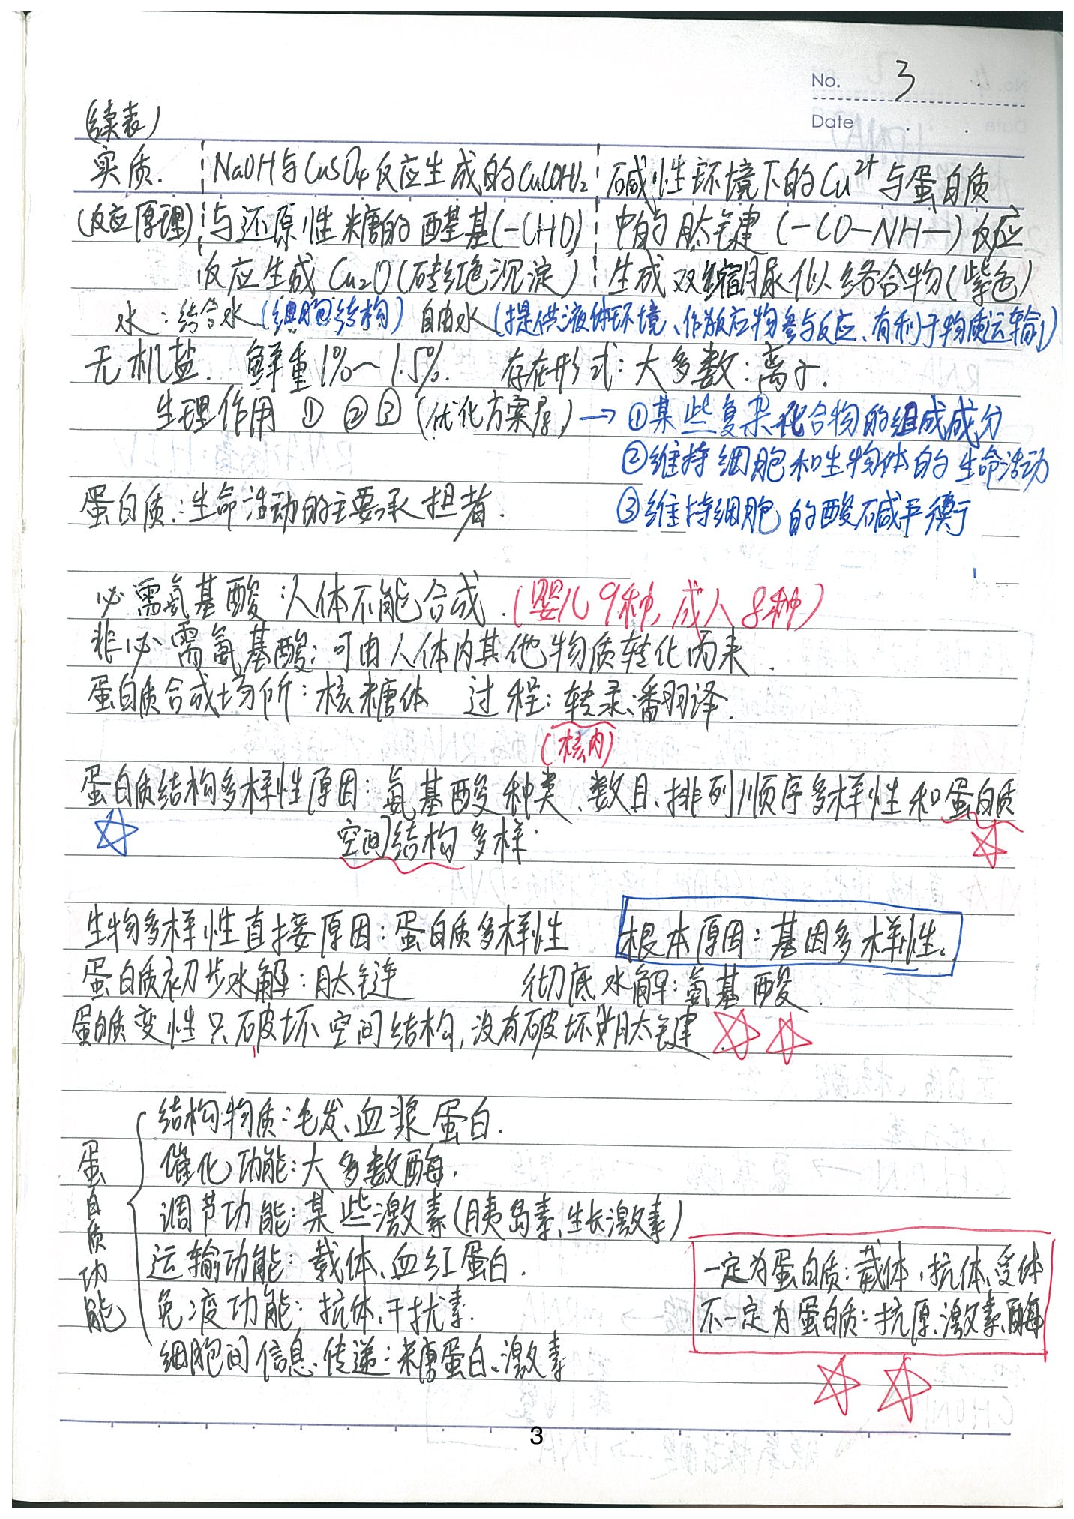 No. 3
Date
(续表)
实质. NaOH与CuSO4反应生成的Cu(OH)2 碱性环境下的Cu²⁺与蛋白质
(反应原理) 与还原性糖的醛基(-CHO) 中的肽键(-CO-NH-)反应
反应生成Cu2O(砖红色沉淀) 生成双缩脲似络合物(紫色)
水:结合水(细胞结构) 自由水(提供液体环境、作为反应物参与反应、有利于物质运输)
无机盐. 鲜重1%~1.5%. 存在形式:大多数:离子.
生理作用 ① ② ③ (优化方案) → ①某些复杂化合物的组成成分
②维持细胞和生物体的生命活动
蛋白质:生命活动的主要承担者.
③维持细胞的酸碱平衡
必需氨基酸:人体不能合成.(婴儿9种,成人8种)
非必需氨基酸:可由人体内其他物质转化而来.
蛋白质合成场所:核糖体 过程:转录、翻译.
(核内)
蛋白质结构多样性原因:氨基酸种类、数目、排列顺序多样性和蛋白质
空间结构多样.
生物多样性直接原因:蛋白质多样性 根本原因:基因多样性.
蛋白质初步水解:肽链 彻底水解:氨基酸.
蛋白质变性只破坏空间结构,没有破坏肽键
蛋白质功能
结构物质:毛发、血浆蛋白.
催化功能:大多数酶.
调节功能:某些激素(胰岛素、生长激素)
运输功能:载体、血红蛋白.
免疫功能:抗体、干扰素.
细胞间信息传递:糖蛋白、激素
一定为蛋白质:载体、抗体、受体
不一定为蛋白质:抗原、激素、酶
3